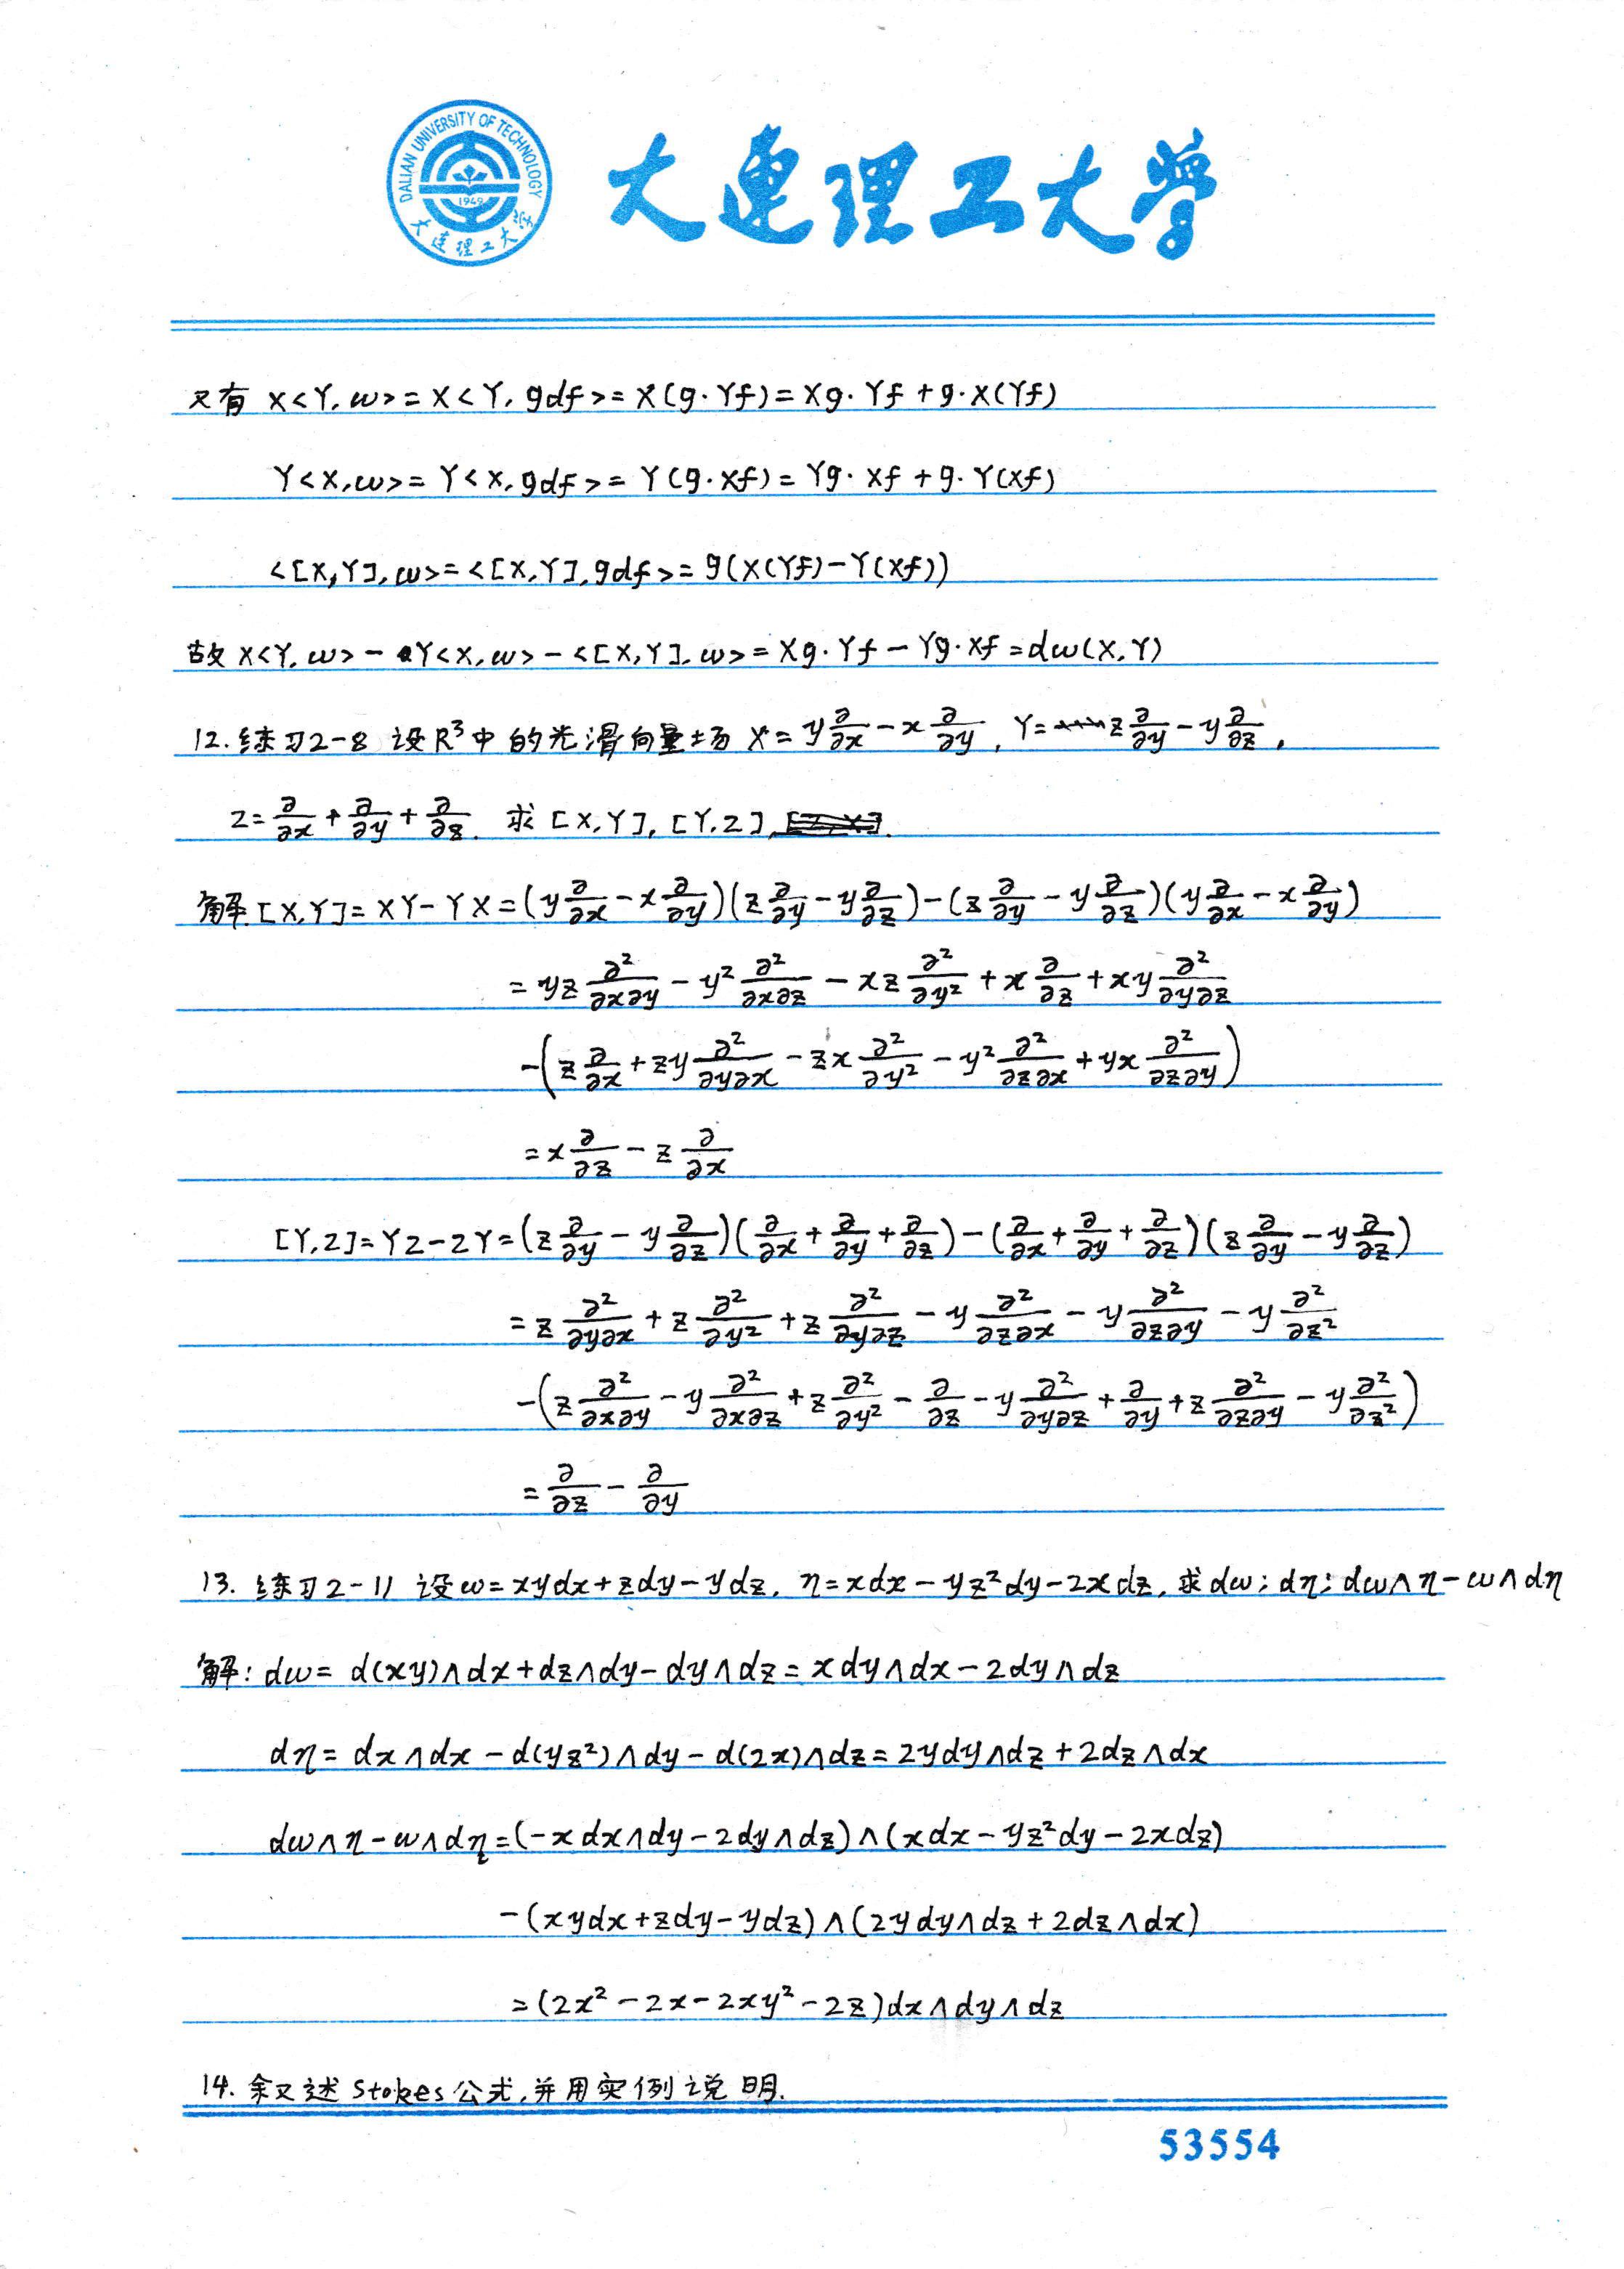 DALIAN UNIVERSITY OF TECHNOLOGY
1949
大连理工大学
大连理工大学
又有 X<Y, ω> = X<Y, gdf> = X(g·Yf) = Xg·Yf + g·X(Yf)
Y<X, ω> = Y<X, gdf> = Y(g·Xf) = Yg·Xf + g·Y(Xf)
<[X,Y], ω> = <[X,Y], gdf> = g(X(Yf) - Y(Xf))
故 X<Y, ω> - Y<X, ω> - <[X,Y], ω> = Xg·Yf - Yg·Xf = dω(X,Y)
12. 练习2-8 设R³中的光滑向量场 X = y∂/∂x - x∂/∂y, Y = z∂/∂y - y∂/∂z,
Z = ∂/∂x + ∂/∂y + ∂/∂z. 求 [X,Y], [Y,Z],
解: [X,Y] = XY - YX = (y∂/∂x - x∂/∂y)(z∂/∂y - y∂/∂z) - (z∂/∂y - y∂/∂z)(y∂/∂x - x∂/∂y)
= yz ∂²/∂x∂y - y² ∂²/∂x∂z - xz ∂²/∂y² + x ∂/∂z + xy ∂²/∂y∂z
-(z ∂/∂x + zy ∂²/∂y∂x - zx ∂²/∂y² - y² ∂²/∂z∂x + yx ∂²/∂z∂y)
= x ∂/∂z - z ∂/∂x
[Y,Z] = YZ - ZY = (z∂/∂y - y∂/∂z)(∂/∂x + ∂/∂y + ∂/∂z) - (∂/∂x + ∂/∂y + ∂/∂z)(z∂/∂y - y∂/∂z)
= z ∂²/∂y∂x + z ∂²/∂y² + z ∂²/∂y∂z - y ∂²/∂z∂x - y ∂²/∂z∂y - y ∂²/∂z²
-(z ∂²/∂x∂y - y ∂²/∂x∂z + z ∂²/∂y² - ∂/∂z - y ∂²/∂y∂z + ∂/∂y + z ∂²/∂z∂y - y ∂²/∂z²)
= ∂/∂z - ∂/∂y
13. 练习2-11 设ω = xydx + zdy - ydz, η = xdx - yz²dy - 2xdz, 求dω; dη; dω∧η - ω∧dη
解: dω = d(xy)∧dx + dz∧dy - dy∧dz = xdy∧dx - 2dy∧dz
dη = dx∧dx - d(yz²)∧dy - d(2x)∧dz = 2ydy∧dz + 2dz∧dx
dω∧η - ω∧dη = (-xdx∧dy - 2dy∧dz)∧(xdx - yz²dy - 2xdz)
-(xydx + zdy - ydz)∧(2ydy∧dz + 2dz∧dx)
= (2x² - 2x - 2xy² - 2z)dx∧dy∧dz
14. 叙述Stokes公式,并用实例说明.
53554